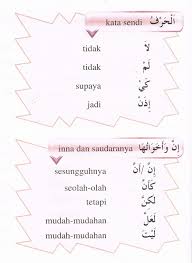 kata sendi اَلْحَرْفُ
tidak لاَ
tidak لَمْ
supaya كَيْ
jadi إِذَنْ
inna dan saudaranya إِنَّ وَأَخَوَاتُهَا
sesungguhnya إِنَّ / أَنَّ
seolah-olah كَأَنَّ
tetapi لَكِنَّ
mudah-mudahan لَعَلَّ
mudah-mudahan لَيْتَ